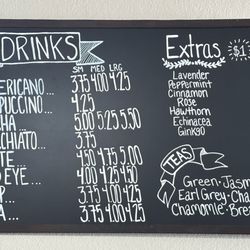 DRINKS
SM MED LRG
ERICANO... 3.75 4.00 4.25
PUCCINO... 4.25
HA... 5.00 5.25 5.50
CHIATO... 3.75
TE... 4.50 4.75 5.00
D EYE... 4.00 4.25 4.50
P... 3.75 4.00 4.25
A... 3.75 4.00 4.25
Extras $1
Lavender
Peppermint
Cinnamon
Rose
Hawthorn
Echinacea
Ginkgo
TEAS
Green · Jasm
Earl Grey · Cha
Chamomile · Bre